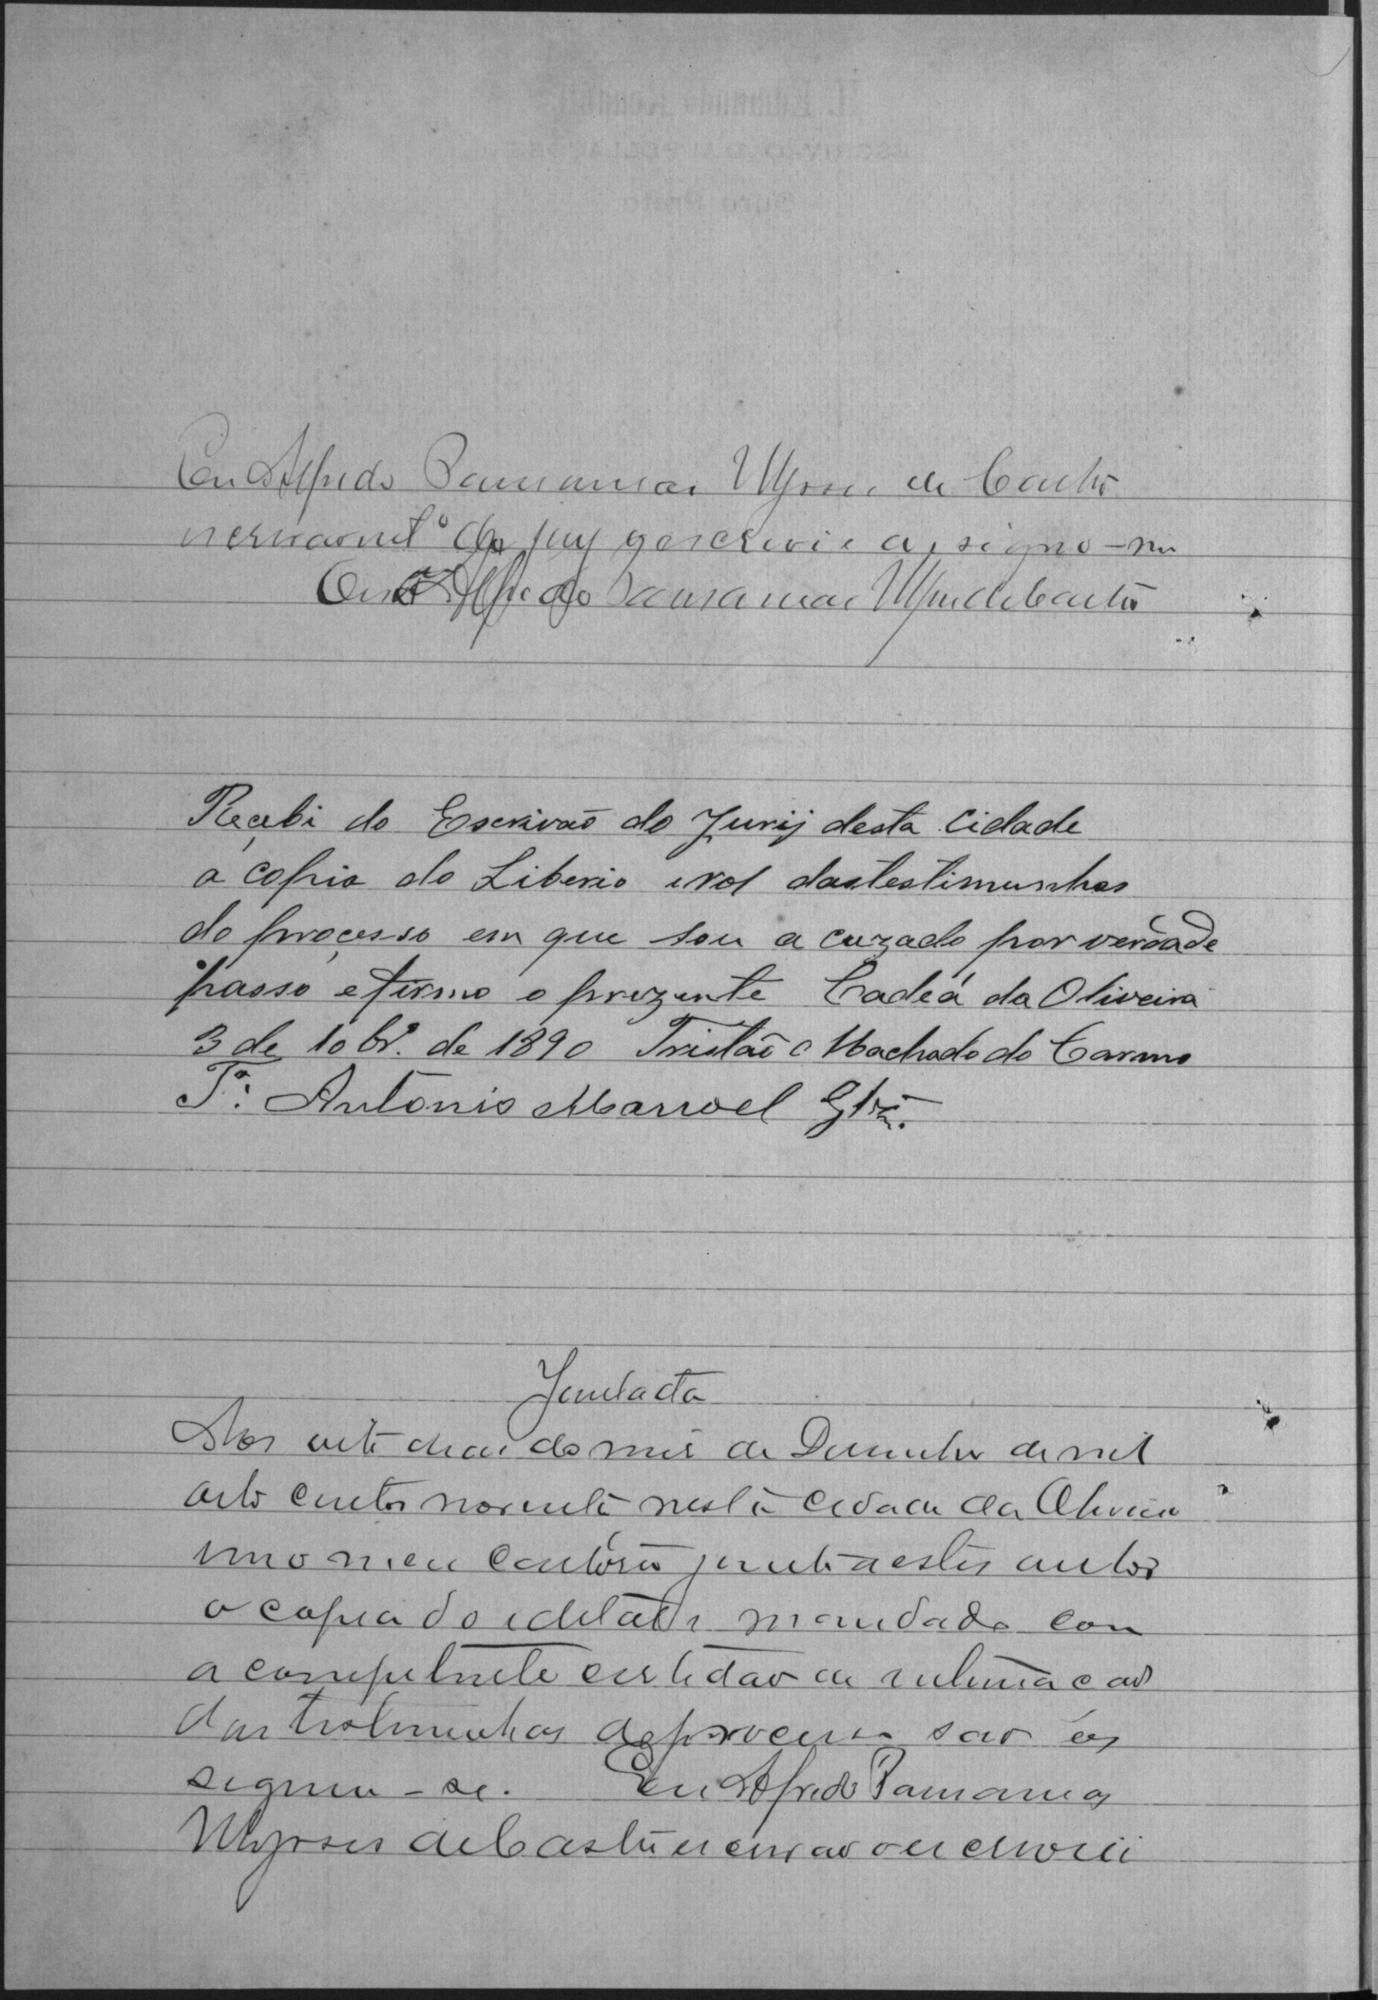 Eu Alfredo Paranamar Ulysses de Castro
do jury q escrevi e assigno-me
Alfredo Paranamar Ulysses de Castro
Reçebi do Escrivaõ do Jurij desta Cidade
a copia do Liberio e rol das testimunhas
do proçesso em que sou a cuzado por verdade
passo e firmo o prezente Cadeá da Oliveira
3 de 10br.º de 1890 Tristaõ Machado do Carmo
T.ª: Antonio Manoel
Junctada
Aos sete dias do mes de Desembro de mil
oito centos noventa nesta cidade da Oliveira
em o meu cartorio junto a estes autos
a copia do edital e mandado com
a competente certidaõ de intimaçaõ
das testimunhas do processo saõ os
seguem-se. Eu Alfredo Paranamar
Ulysses de Castro escrivaõ o escrevi